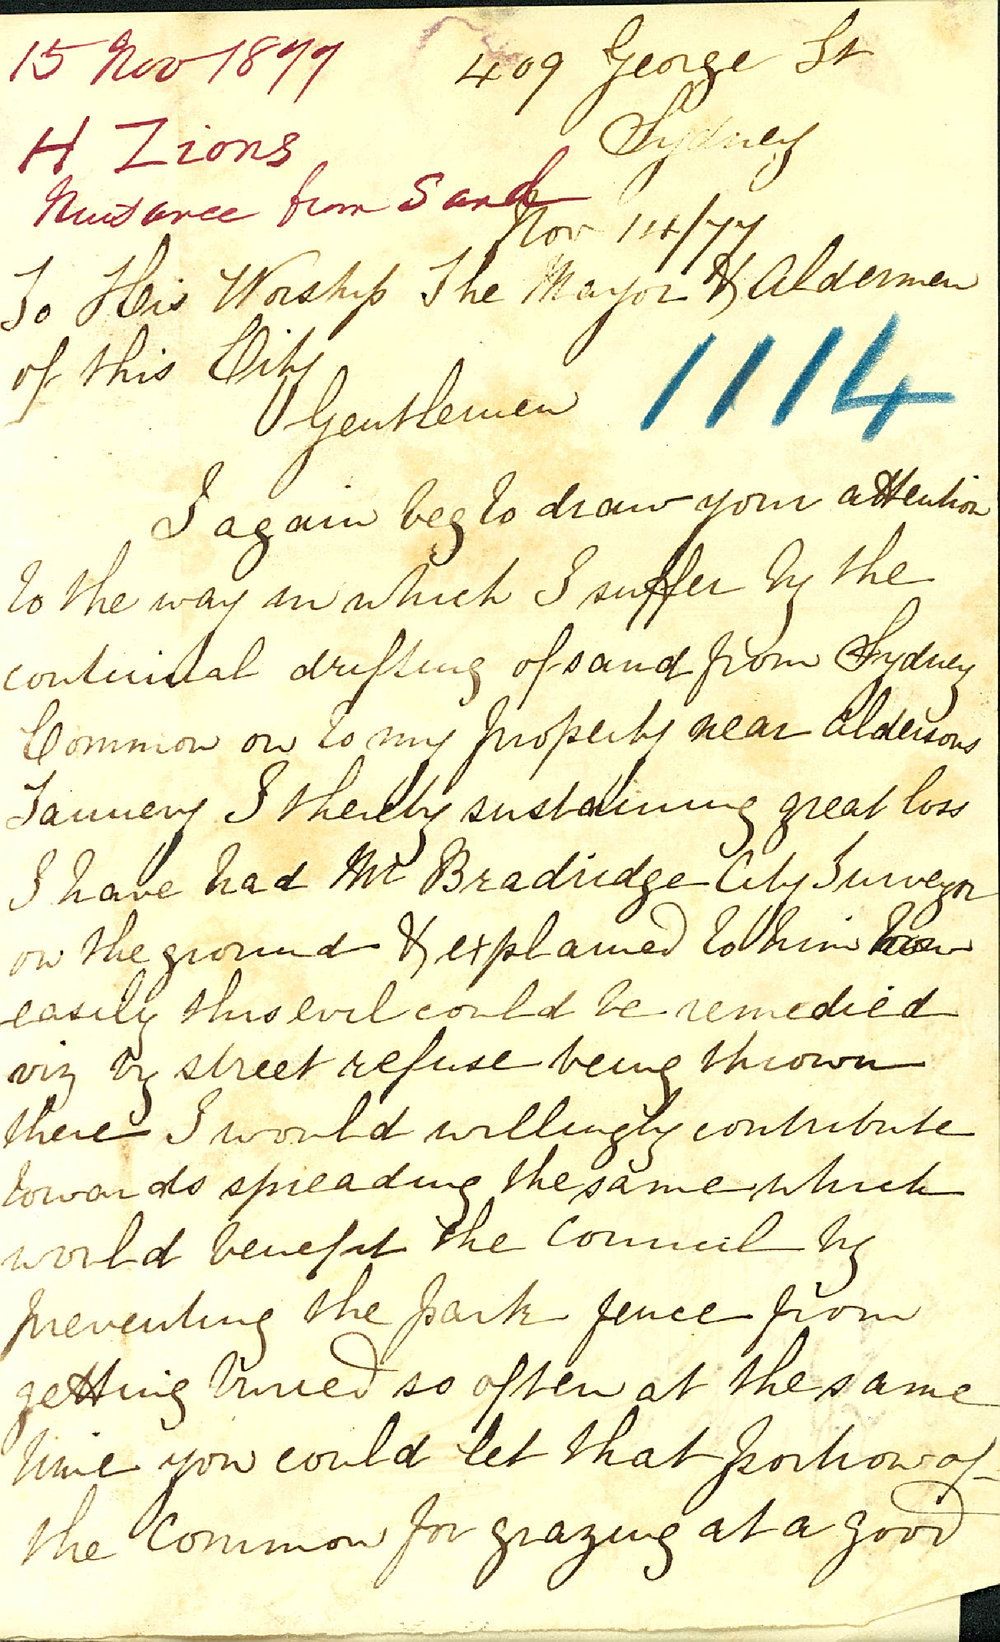 15 Nov 1877
409 George St
Sydney
H Zions
Nuisance from Sand
Nov 14/77
To His Worship The Mayor & Aldermen
of this City
Gentlemen
1114
I again beg to draw your attention
to the way in which I suffer by the
continual drifting of sand from Sydney
Common on to my property near Aldersons
Tannery I thereby sustaining great loss
I have had Mr Bradridge City Surveyor
on the ground & explained to him how
easily this evil could be remedied
viz by street refuse being thrown
there I would willingly contribute
towards spreading the same which
would benefit the Council by
preventing the park fence from
getting buried so often at the same
time you could let that portion of
the Common for grazing at a good